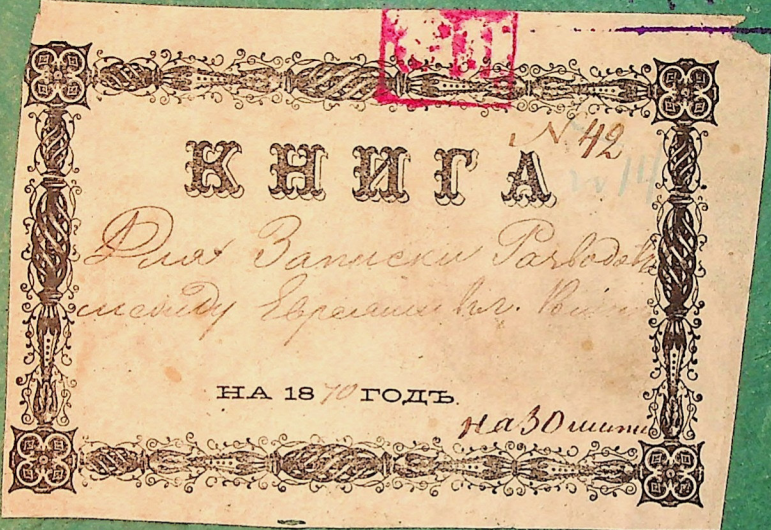 № 42
КНИГА
Для Записки Разводовъ
между Евреями вг.
НА 1870 ГОДЪ.
на 30